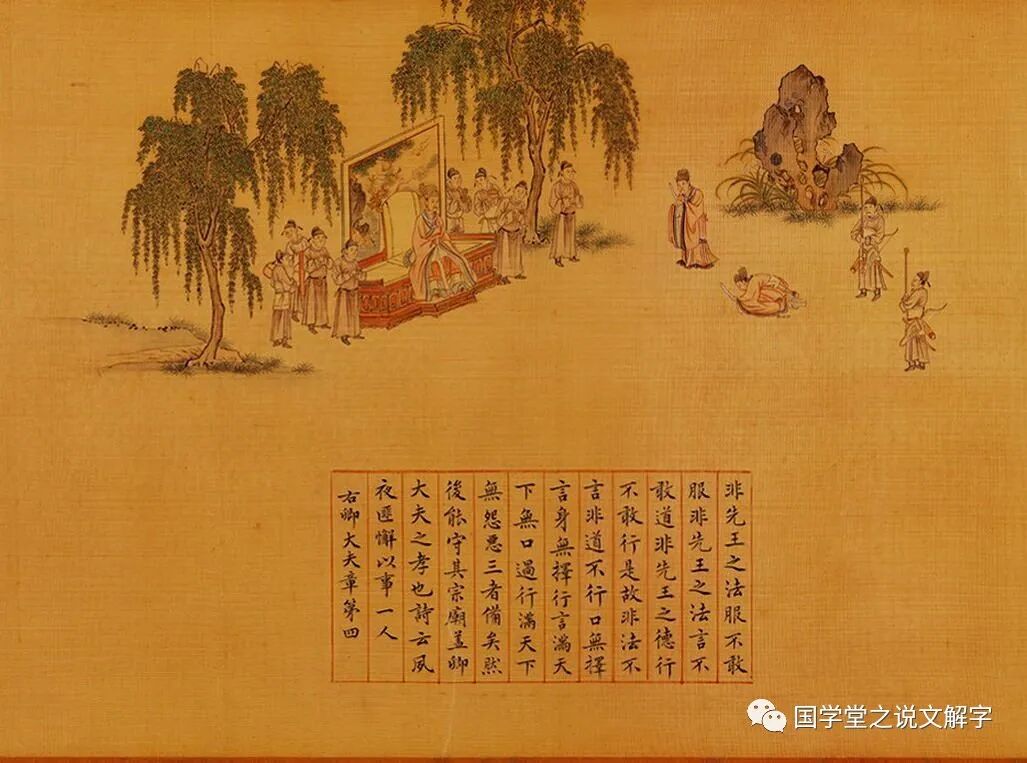 非先王之法服不敢
服非先王之法言不
敢道非先王之德行
不敢行是故非法不
言非道不行口無擇
言身無擇行言滿天
下無口過行滿天下
無怨惡三者備矣然
後能守其宗廟蓋卿
大夫之孝也詩云夙
夜匪懈以事一人
右卿大夫章第四
国学堂之说文解字